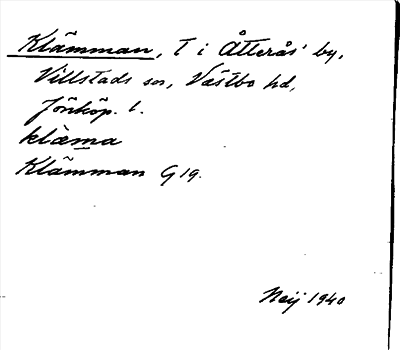 Klämman, T i Åtterås' by,
Villstads sn, Västbo hd,
Jönköp. l.
klæma
Klämman G 19.
Neij 1940